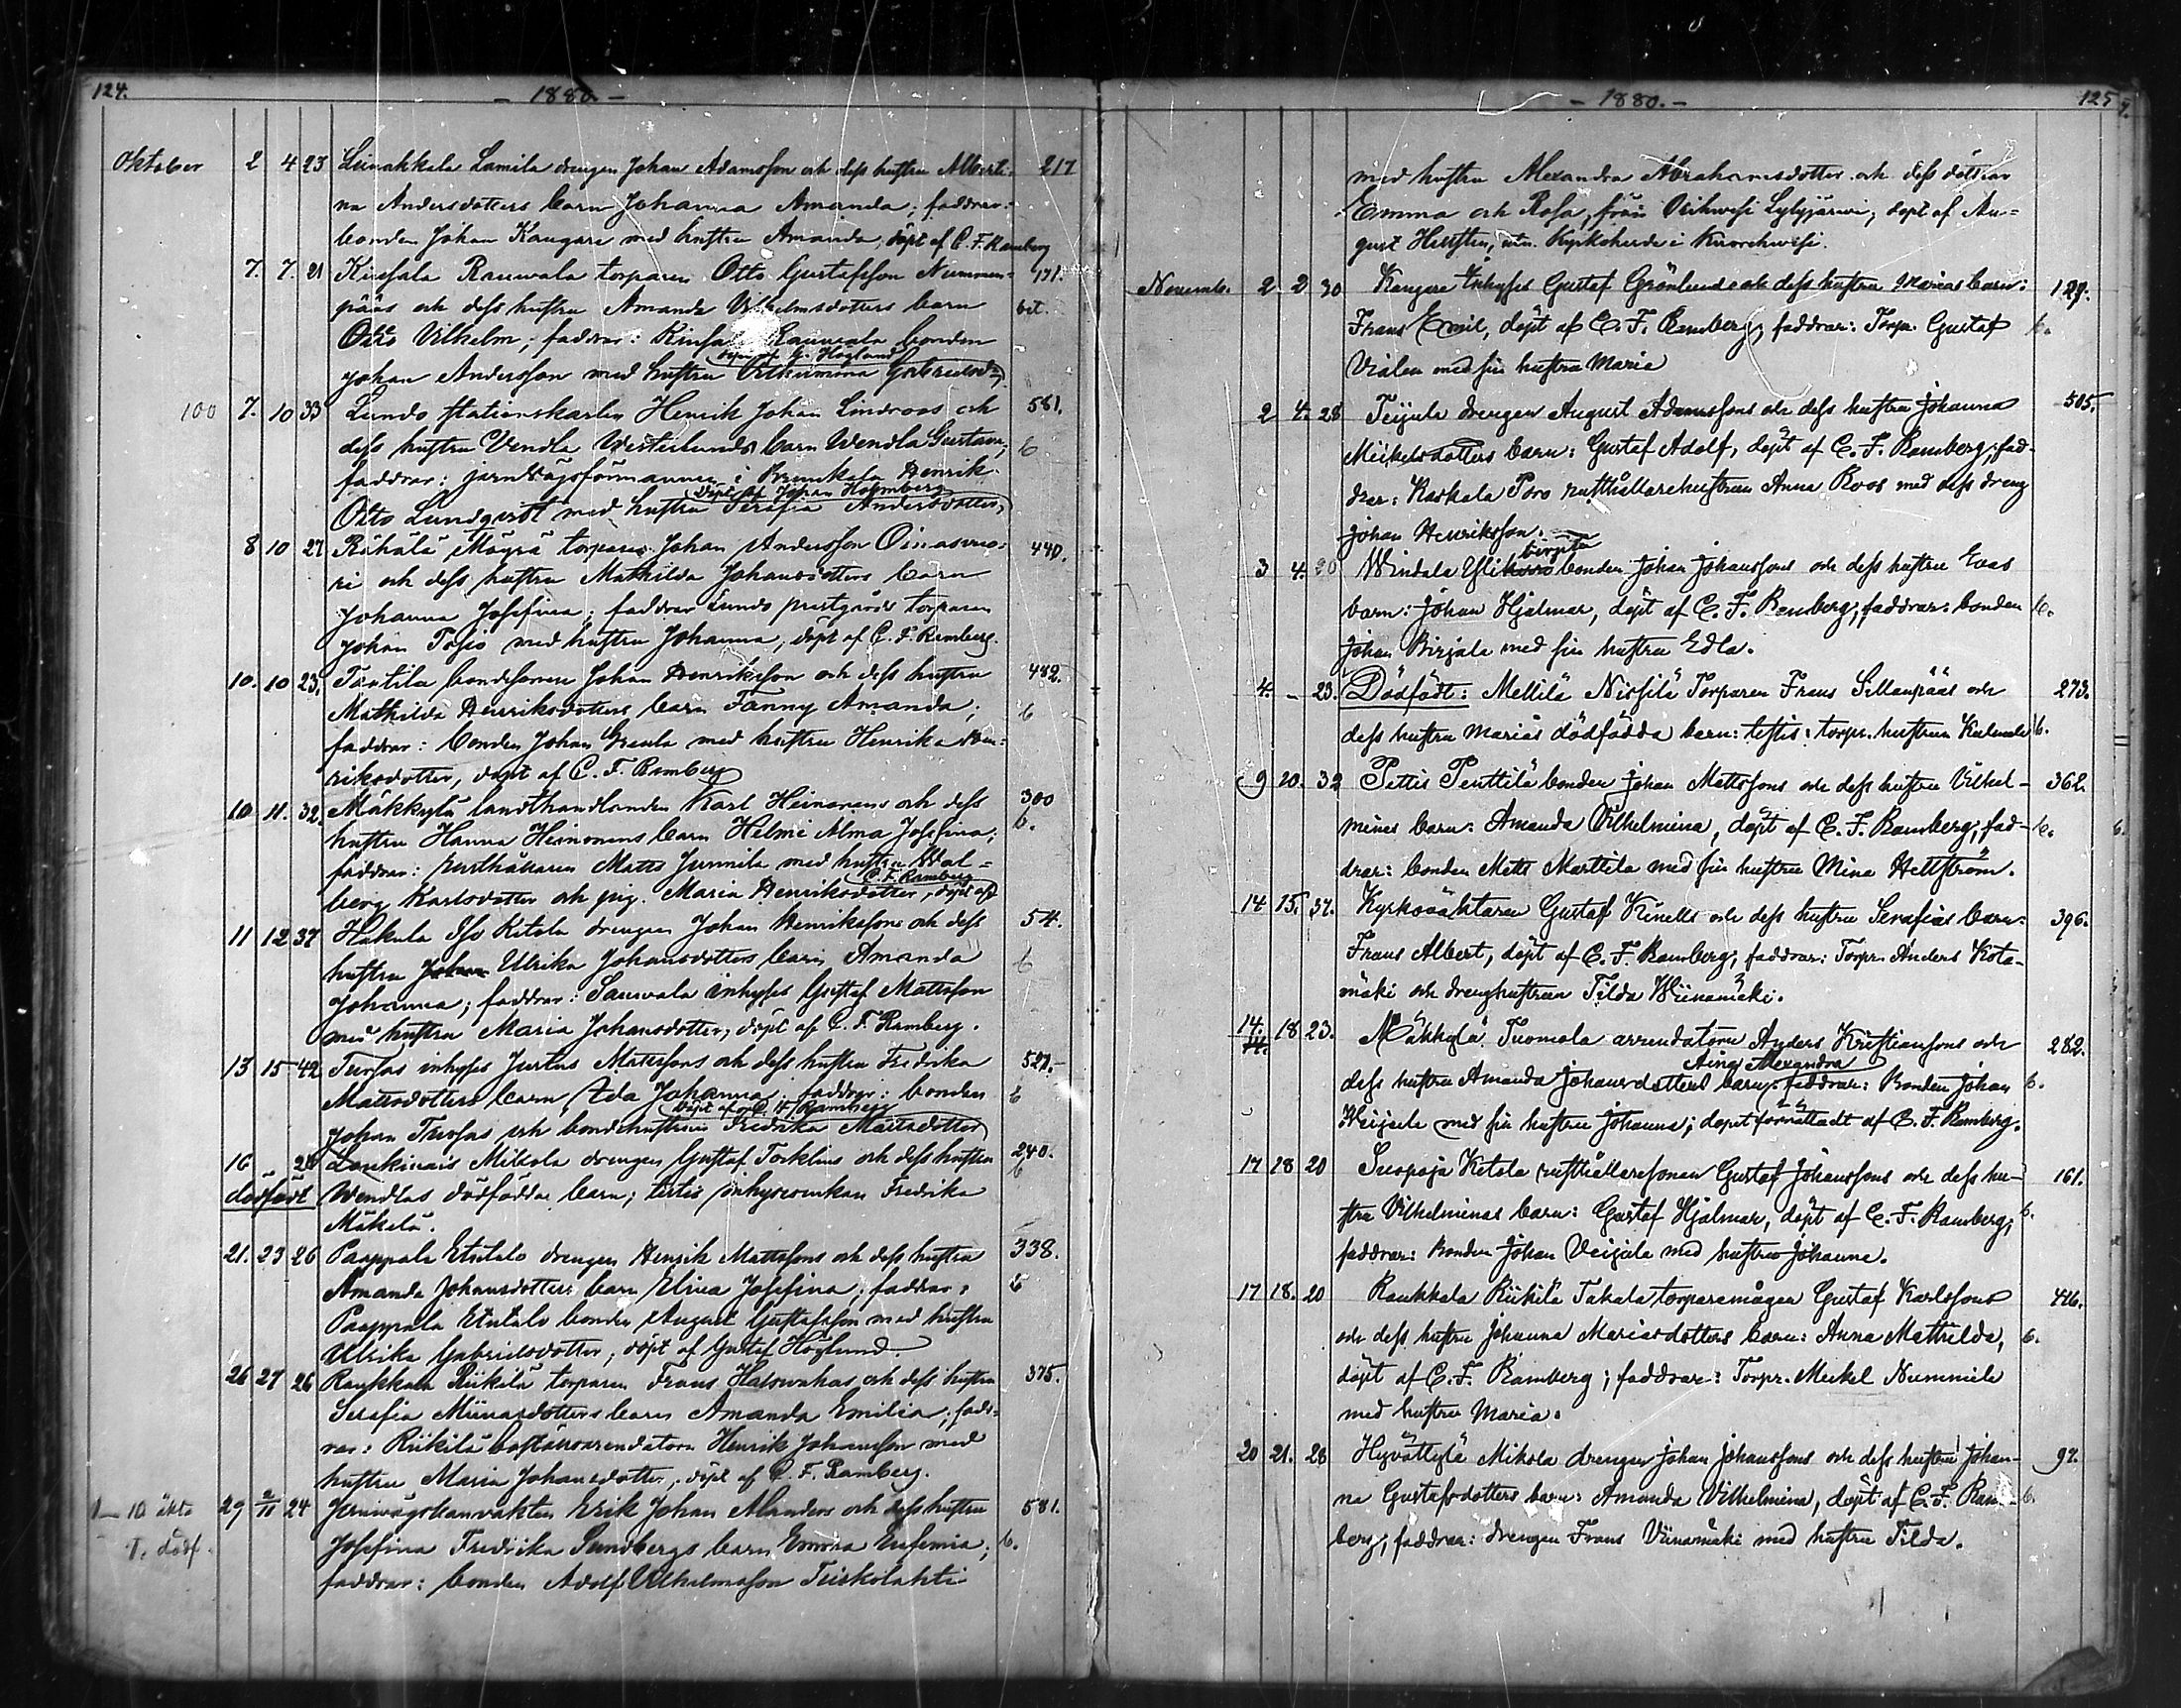 124.
- 1880. -
Oktober 2 4 23 Liinakkala Lamila drengen Johan Adamsson och dess hustru Alberti- 217
na Andersdotters barn Johanna Amanda; faddrar:
bonden Johan Kangare med hustru Amanda, döpt af C. F. Ramberg
7. 7 21 Rauwala torparen Otto Gustafsson Nummen- 171.
pääs och dess hustru Amanda Vilhelmsdotters barn bit.
Otto Vilhelm; faddrar: Rauwala bonden
döpt af G. Höglund
Johan Andersson med hustru Vilhelmina
100 7. 10 33 Lundo stationskarlen Henrik Johan Lindroos och 581.
dess hustru Vendla Westerlunds barn Wendla Gustava, b
faddrar: jernvägsförmannen i Henrik
döpt af Johan Holmberg
Otto Lundqvist med hustru Serafia Andersdotter,
8 10 27 Rähälä Mägrä torparen Johan Andersson Oinasvuo- 440.
ri och dess hustru Mathilda Johansdotters barn
Johanna Josefina; faddrar Lundo prestgårds torparen
Johan med hustru Johanna, döpt af C. F. Ramberg.
10. 10 23. Tintilä bondesonen Johan Henriksson och dess hustru 482.
Mathilda Henriksdotters barn Fanny Amanda; b
faddrar: bonden Johan med hustru Henrika Hen-
riksdotter, döpt af C. F. Ramberg
10 11. 32. Mäkkylä landthandlanden Karl Heinonens och dess 300
hustru Hanna Heinonens barn Helmi Alma Josefina; b.
faddrar: rusthållaren Matts Junnila med hustru Wal-
C. F. Ramberg
berg Karlsdotter och pig. Maria Henriksdotter, döpt af
11 12 37 Hakula Iso Kitola drengen Johan Henrikssons och dess 54.
hustru Ulrika Johansdotters barn Amanda b
Johanna; faddrar: Sauwala inhyses Gustaf Mattsson
med hustru Maria Johansdotter, döpt af C. F. Ramberg.
13 15 42 Tuofas inhyses Justus Matssons och dess hustru Fredrika 527.
Mattsdotters barn Ida Johanna, faddrar: bonden b
döpt af C. F. Ramberg
Johan Tuofas och bondehustrun Fredrika Mattsdotter
16 24 Loukinais Mikola drengen Gustaf Torklins och dess hustru 240.
dödfödt Wendlas dödfödda barn; testis inhyseenkan Fredrika b
Mäkelä.
21. 23 26 Paappala Etutalo drengen Henrik Mattssons och dess hustru 338.
Amanda Johansdotters barn Elina Josefina; faddrar: b
Paappala Etutalo bonden August Gustafsson med hustru
Ulrika Gabrielsdotter, döpt af Gustaf Höglund
26 27 26 Raukkala Riikilä torparen Frans och dess hustru 375.
Serafia barn Amanda Emilia; fadd-
rar: Riikilä Henrik Johansson med
hustru Maria Johansdotter, döpt af C. F. Ramberg.
10 äkta 29 2/11 24 Jernvägsbanvakten Erik Johan Alanders och dess hustru 581.
1. dödf. Josefina Fredrika Sundbergs barn Emma Eufemia; b.
faddrar: bonden Adolf Vilhelmsson
125
- 1880. -
med hustru Alexandra Abrahamsdotter och dess döttrar
Emma och Rosa, från Orihwesi Lylyjärwi; döpt af Au-
gust Hertsten, Kyrkoherde i Kuorehwesi.
Novemb. 2 2 30 Kangare Inhyses Gustaf Grönlunds och dess hustru Marias barn: 129.
Frans Emil, döpt af C. F. Ramberg; faddrar: Torp. Gustaf b.
Vialen med sin hustru Maria
2 4. 28 Teijula drengen August Adamssons och dess hustru Johanna 505.
Mickelsdotters barn: Gustaf Adolf, döpt af C. F. Ramberg; fad-
drar: Kaskala Poro rusthållarehustrun Anna Roos med dess dreng
Johan Henriksson.
3 4. 20 Windala bonden Johan Johanssons och dess hustru Evas
barn: Johan Hjalmar, döpt af C. F. Ramberg; faddrar: bonden b.
Johan Pirjala med sin hustru Edla.
4. - 23. Dödfödt: Mellilä Nissilä Torparen Frans Sillanpääs och 273.
dess hustru Marias dödfödda barn: testis: torpr. hustrun b.
9 20. 32 Pettis Penttilä bonden Johan Mattssons och dess hustru Vilhel- 362.
minas barn: Amanda Vilhelmina, döpt af C. F. Ramberg; fad- b.
drar: bonden Matts Marttila med sin hustru Mina Hellström.
14 15. 37. Kyrkoväktaren Gustaf Kinells och dess hustru Serafias barn: 396.
Frans Albert, döpt af C. F. Ramberg; faddrar: Torpr. Anders Kota-
mäki och drenghustrun Tilda Wiinamäki.
14. 18 23. Mäkkylä Tuomola arrendatorn Anders Kristianssons och 282.
Aina Alexandra
dess hustru Amanda Johansdotters barn: faddrar: Bonden Johan b.
Weijola med sin hustru Johanna; dopet förrättadt af C. F. Ramberg.
17 18 20 Suopoja Ketola rusthållaresonen Gustaf Johanssons och dess hu- 161.
stru Vilhelminas barn: Gustaf Hjalmar, döpt af C. F. Ramberg; b.
faddrar: Bonden Johan Veijola med hustru Johanna.
17 18. 20 Raukkala Riikilä Takala torparemågen Gustaf Karlssons 416.
och dess hustru Johanna Mariasdotters barn: Anna Mathilda, b.
döpt af C. F. Ramberg; faddrar: Torpr. Mickel Nummila
med hustru Maria.
20 21. 28 Hyvättylä Mikola drengen Johan Johanssons och dess hustru Johan- 97.
na Gustafsdotters barn: Amanda Vilhelmina, döpt af C. F. Ram- b.
berg; faddrar: drengen Frans Viinamäki med hustru Tilda.